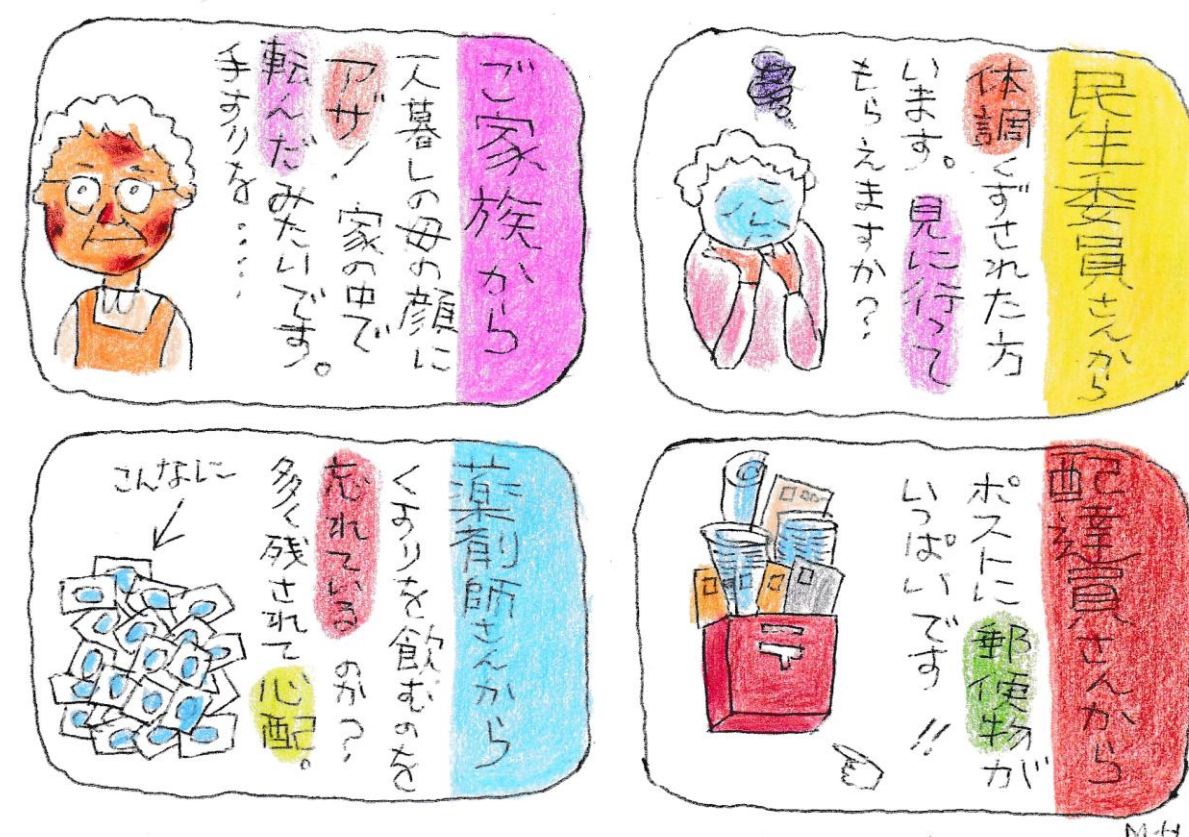 民生委員さんから
体調くずされた方
います。見に行って
もらえますか?
ご家族から
一人暮しの母の顔に
アザ! 家の中で
転んだみたいです。
手すりを・・・・・
配達員さんから
ポストに郵便物が
いっぱいです!!
薬剤師さんから
くすりを飲むのを
忘れているのか?
多く残されて心配。
こんなに
M.H